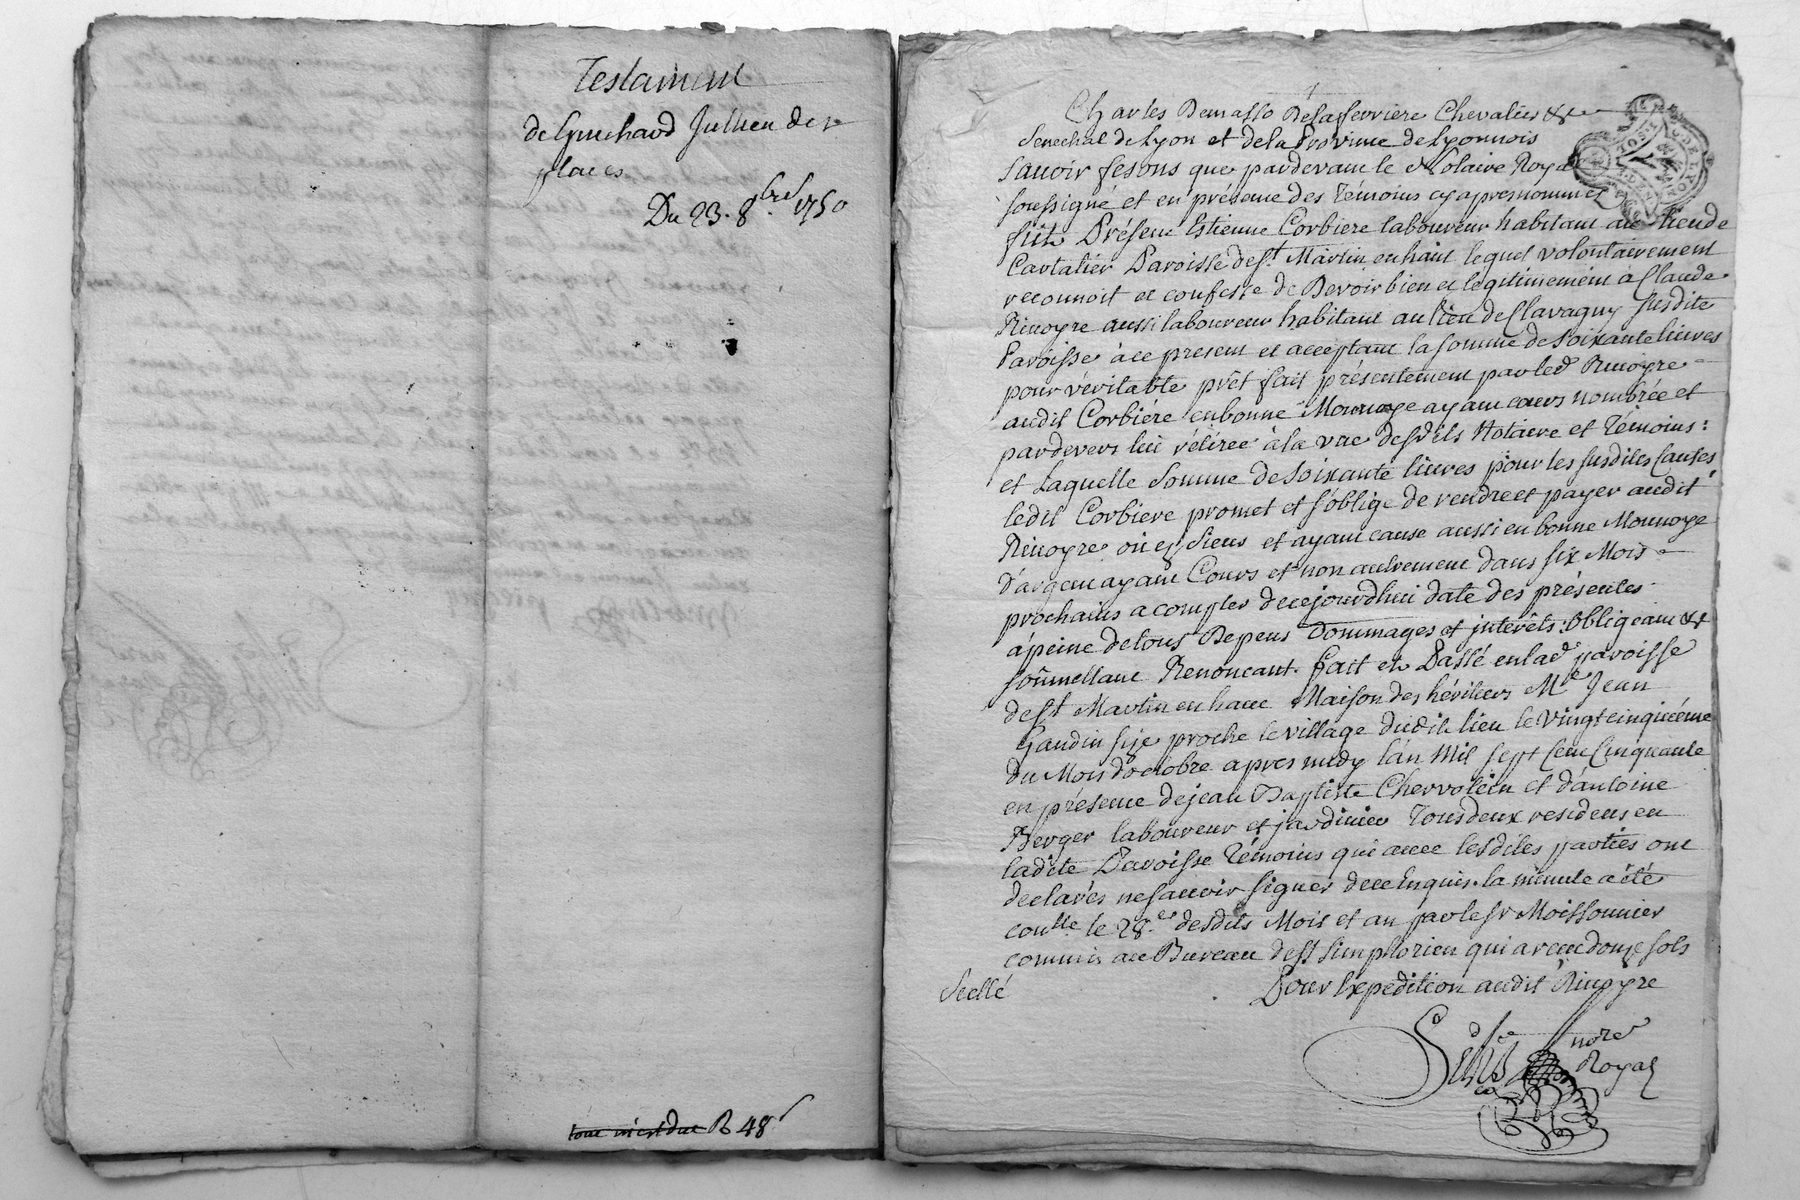 Testament
de Guichard Jullien des
places
Du 23. 8bre 1750
tout m'est due R 48s
Charles Demasso Delaferriere Chevalier &c
Senechal de Lyon et dela Province de Lyonnois
Savoir fesons que pardevant le Notaire Royal
soussigné et en présence des Témoins cy apres nommez
fût Présent Estienne Corbiere laboureur habitant au lieu de
Cartalier Paroisse de St. Martin en haut lequel volontairement
reconnoit et confesse de Devoir bien et legitimement à Claude
Rivoyre aussi laboureur habitant au lieu de Clavagny susdite
Paroisse à ce present et acceptant la somme de soixante livres
pour véritable prêt fait présentement par led Rivoyre
audit Corbiére en bonne Monnoye ayant cours nombrée et
pardevers lui rétirée à la vue desdits Notaire et Témoins:
et Laquelle Somme de Soixante livres pour les susdites Causes
ledit Corbiere promet et s'oblige de rendre et payer audit
Rivoyre ou es siens et ayant cause aussi en bonne Monnoye
d'argent ayant Cours et non autrement dans six Mois
prochains a compter de cejourdhui date des présentes
à peine de tous Depens Dommages et interêts: Obligeant &c
soûmettant Renoncant. Fait et Passé en lad paroisse
de St Martin en haut Maison des héritiers Me Jean
Gaudin size proche le village dudit lieu le vingt cinquiéme
du Mois doctobre apres midy l'an Mil sept Cent Cinquante
en présence de jean Baptiste Chervolein et d'antoine
Berger laboureur et jardinier Tous deux residens en
ladite Paroisse Témoins qui avec lesdites parties ont
declarés ne sauvoir signer de ce Enquis. la minute a été
coutlle le 28.es desdits Mois et an par le sr Moissonnier
commis au Bureau de St Simphorien qui a receu douze sols
Scellé
Pour Expédition audit Rivoyre
nore
Royal